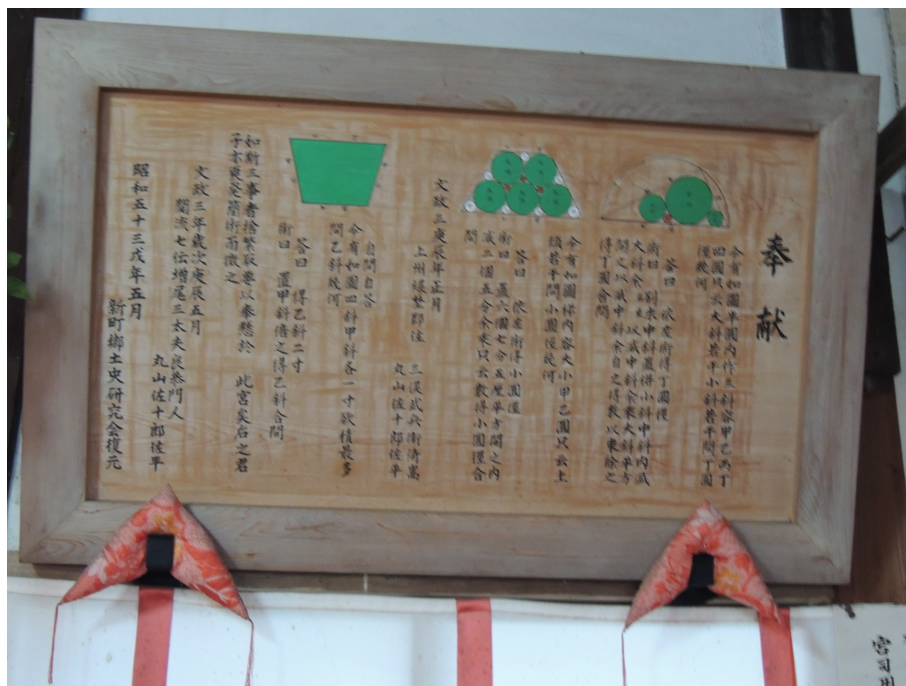 奉献
今有如圖半圓内作三斜容甲乙丙丁
四圓只云大斜若干小斜若干問丁圓
徑幾何
答曰 依左術得丁圓徑
術曰 別求中斜置併小斜中斜内減
大斜余
以減中斜余乗大斜平方
開之以減中斜余自之得数以東除之
得丁圓合問
今有如圖梯内容大小甲乙圓只云上
頭若干問小圓徑幾何
答曰 依左術得小圓徑
術曰 置六個七分五厘平方開之内
減二個五分余乗只云数得小圓徑合
問
文政三庚辰年正月
上州緑埜郡住
三俣武兵衛
丸山佐十郎佐平
自問自答
今有如圖四斜甲斜各一寸欲積最多
問乙斜幾何
答曰 得乙斜二寸
術曰 置甲斜倍之得乙斜合問
如斯三事者捨繁取要以奉懸於 此宮矣后之君
子亦更発簡術而徴之
文政三年歳次庚辰五月
関流七伝増尾三太夫良恭門人
丸山佐十郎佐平
昭和五十三戊年五月
新町郷土史研究会復元
宮司